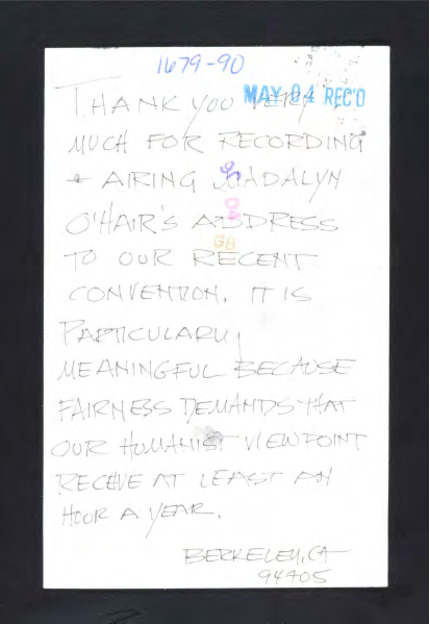 1679-90
MAY 04 REC'D
THANK YOU VERY
MUCH FOR RECORDING
+ AIRING MADALYN
O'HAIR'S ADDRESS
TO OUR RECENT
CONVENTION. IT IS
PARTICULARLY
MEANINGFUL BECAUSE
FAIRNESS DEMANDS THAT
OUR HUMANIST VIEWPOINT
RECEIVE AT LEAST AN
HOUR A YEAR.
BERKELEY, CA
94705
GB